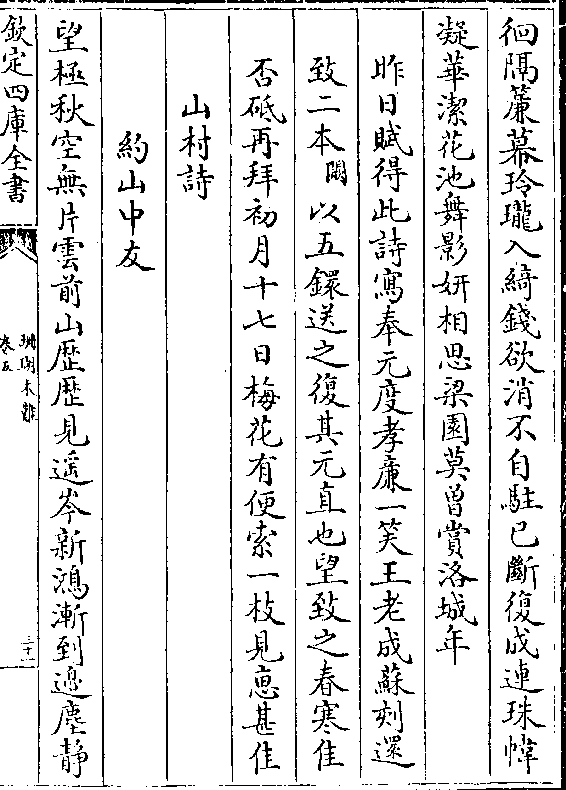 徊隔簾幕玲瓏入綺錢欲消不自駐已斷復成連珠幃
凝華潔花池舞影妍相思梁園莫曾賞洛城年
昨日賦得此詩寫奉元度孝廉一笑王老成蘇刻還
致二本闕以五鐶送之復其元直也望致之春寒佳
否砥再拜初月十七日梅花有便索一枝見惠甚佳
山村詩
約山中友
望極秋空無片雲前山歷歷見遥岑新鴻漸到邊塵静
欽定四庫全書
珊瑚木難
卷五
三十二